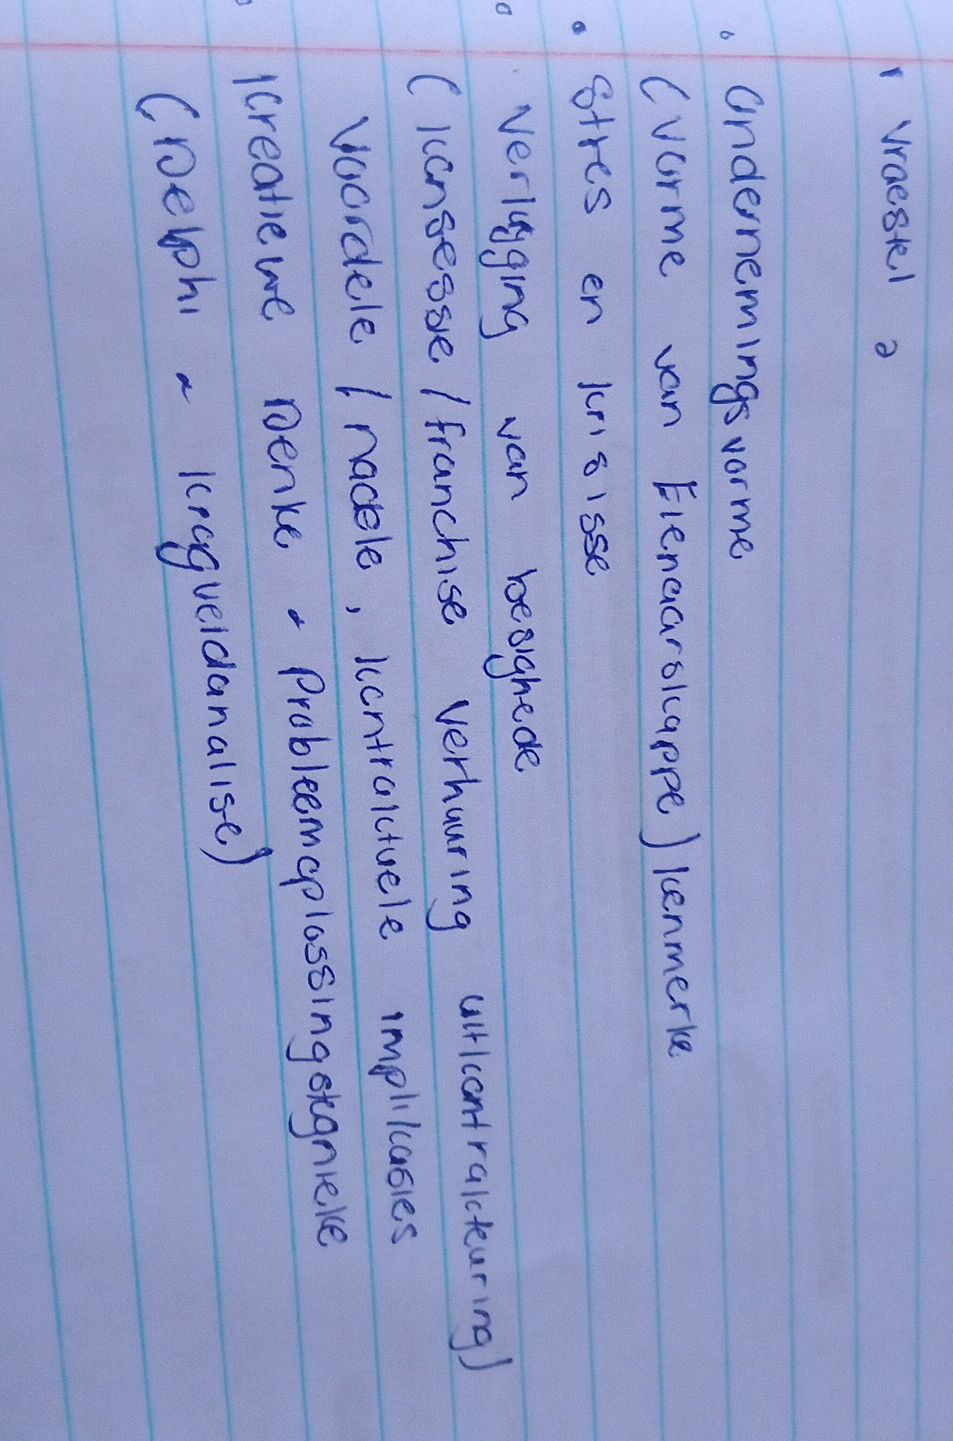 ' Vraestel 2
° Ondernemingsvorme
(Vorme van Eienaarskappe) kenmerke
• Stres en krisisse
° Verkryging van besighede
(Konsessie / franchise verhuuring uitkontrakteuring)
Voordele / nadele, kontraktuele implikasies
° Kreatiewe Denke & Probleemoplossingstegnieke
(Delphi & kragveldanalise)